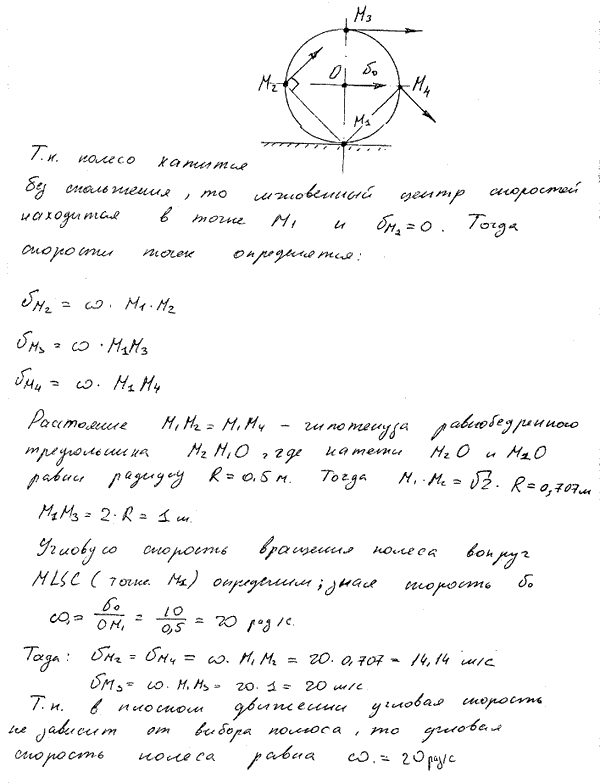 M3
M2
O
υ0
M4
M1
Т.к. колесо катится
без скольжения, то мгновенный центр скоростей
находится в точке M1 и υM1=0. Тогда
скорости точек определятся:
υM2 = ω · M1·M2
υM3 = ω · M1M3
υM4 = ω · M1M4
Расстояние M1M2 = M1M4 – гипотенуза равнобедренного
треугольника M2M1O, где катеты M2O и M1O
равны радиусу R=0,5 м. Тогда M1·M2=√2·R=0,707м
M1M3 = 2·R = 1 м.
Угловую скорость вращения колеса вокруг
МЦС (точке M1) определим, зная скорость υ0
ω = υ0/OM1 = 10/0,5 = 20 рад/с.
Тогда: υM2 = υM4 = ω · M1M2 = 20·0,707 = 14,14 м/с
υM3 = ω · M1M3 = 20·1 = 20 м/с.
Т.к. в плоском движении угловая скорость
не зависит от выбора полюса, то угловая
скорость колеса равна ω = 20рад/с